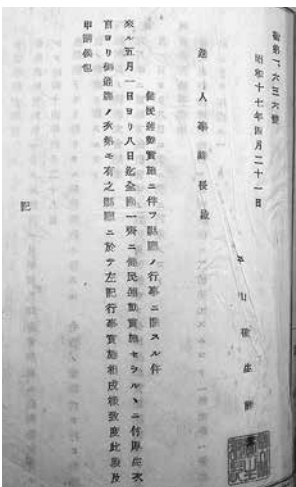 衛第一六三六號
昭和十七年四月二十一日
平山衛生課
人事課長殿
健民運動實施ニ伴フ縣廳ノ行事ニ關スル件
來ル五月一日ヨリ八日迄全國一齊ニ健民運動實施セラルヽニ付厚生次
官ヨリ御通牒ノ次第モ有之縣廳ニ於テ左記行事實施相成樣致度此段及
申請候也
記